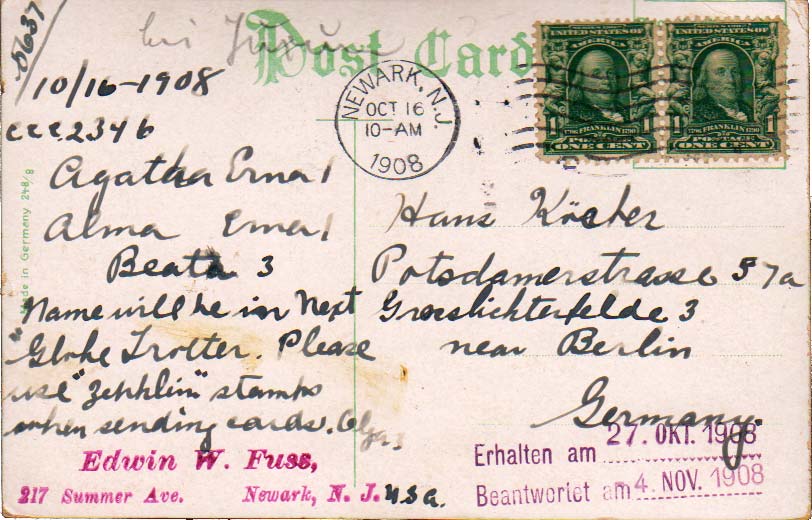 5637
bei
Post Card
10/16-1908
ccc. 2346
Agatha Erna 1
Alma Erna 1
Beata 3
"Name will be in Next
Globe Trotter. Please
use "Zepplin" stamps
when sending cards.
Edwin W. Fuss,
217 Summer Ave. Newark, N. J. USA.
Made in Germany 248/8
NEWARK, N.J.
OCT 16
10-AM
1908
UNITED STATES OF AMERICA
1 1706 FRANKLIN 1790 1
POSTAGE
ONE CENT
UNITED STATES OF AMERICA
1 1706 FRANKLIN 1790 1
POSTAGE
ONE CENT
Hans Köcher
Potsdamerstrasse 57a
Grosslichterfelde 3
near Berlin
Germany.
Erhalten am 27. OKT. 1908
Beantwortet am 4. NOV. 1908